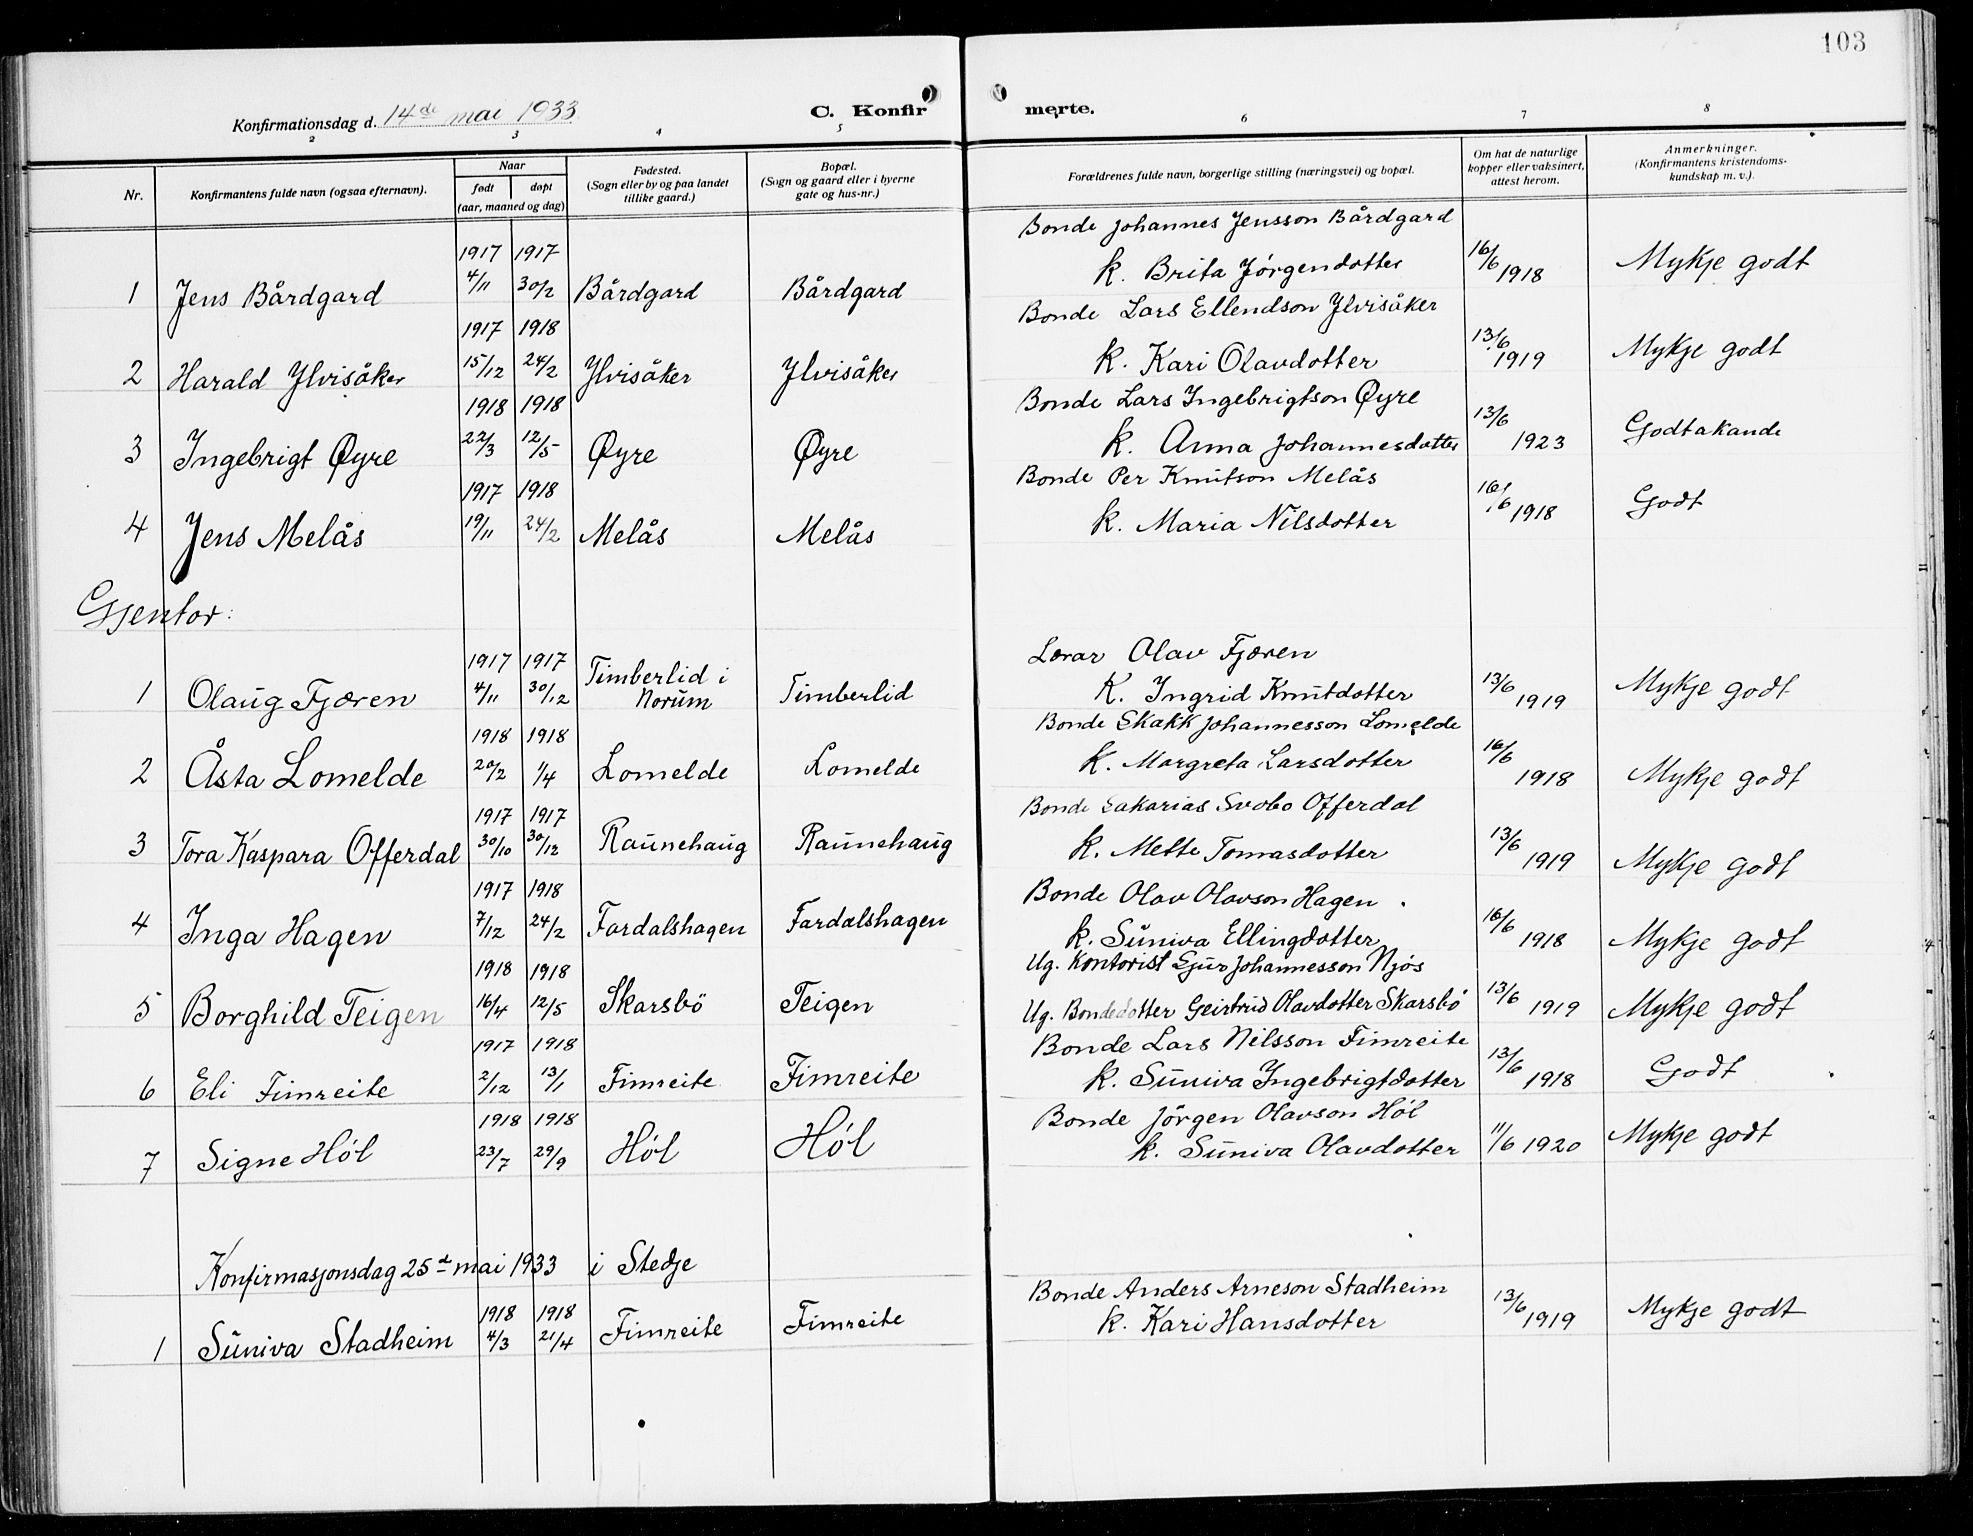 103
Konfirmationsdag d. 14de mai 1933
C. Konfirmerte.
2 3 4 5 6 7 8
Nr. Konfirmantens fulde navn (ogsaa efternavn). Naar født døpt (aar, maaned og dag) Fødested. (Sogn eller by og paa landet tillike gaard.) Bopæl. (Sogn og gaard eller i byerne gate og hus-nr.) Forældrenes fulde navn, borgerlige stilling (næringsvei) og bopæl. Om hat de naturlige kopper eller vaksinert, attest herom. Anmerkninger. (Konfirmantens kristendomskundskap m. v.).
1917 1917 Bonde Johannes Jensson Bårdgard
1 Jens Bårdgard 4/11 30/2 Bårdgard Bårdgard k. Brita Jórgendotter 16/6 1918 Mykje godt
1917 1918 Bonde Lars Ellendson Ylvisåker
2 Harald Ylvisåker 15/12 24/2 Ylvisåker Ylvisåker k. Kari Olavdotter 13/6 1919 Mykje godt
1918 1918 Bonde Lars Ingebrigtson Øyre
3 Ingebrigt Øyre 22/3 12/5 Øyre Øyre k. Anna Johannesdotter 13/6 1923 Godtakande
1917 1918 Bonde Per Knutson Melås
4 Jens Melås 19/11 24/2 Melås Melås k. Maria Nilsdotter 16/6 1918 Godt
Gjentor:
1917 1917 Timberlid i Lærar Olav Fjæren
1 Olaug Fjæren 4/11 30/12 Norum Timberlid K. Ingrid Knutdotter 13/6 1919 Mykje godt
1918 1918 Bonde Skakk Johannesson Lomelde
2 Åsta Lomelde 20/2 1/4 Lomelde Lomelde k. Margreta Larsdotter 16/6 1918 Mykje godt
1917 1917 Bonde Sakarias Svobo Offerdal
3 Tora Kaspara Offerdal 30/10 30/12 Raunehaug Raunehaug k. Mette Tomasdotter 13/6 1919 Mykje godt
1917 1918 Bonde Olav Olavson Hagen
4 Inga Hagen 7/12 24/2 Fardalshagen Fardalshagen k. Suniva Ellingdotter 16/6 1918 Mykje godt
1918 1918 Ug. Kontorist Sjur Johannesson Njøs
5 Borghild Teigen 16/4 12/5 Skarsbö Teigen Ug. Bondedotter Geirtrud Olavdotter Skarsbö 13/6 1919 Mykje godt
1917 1918 Bonde Lars Nilsson Fimreite
6 Eli Fimreite 2/12 13/1 Fimreite Fimreite k. Suniva Ingebrigtdotter 13/6 1918 Godt
1918 1918 Bonde Jörgen Olavson Hól
7 Signe Hól 23/7 29/9 Hól Hól k. Suniva Olavdotter 11/6 1920 Mykje godt
Konfirmasjonsdag 25de mai 1933 i Stedje
1918 1918 Bonde Anders Arneson Stadheim
1 Suniva Stadheim 4/3 21/4 Fimreite Fimreite k. Kari Hansdotter 13/6 1919 Mykje godt